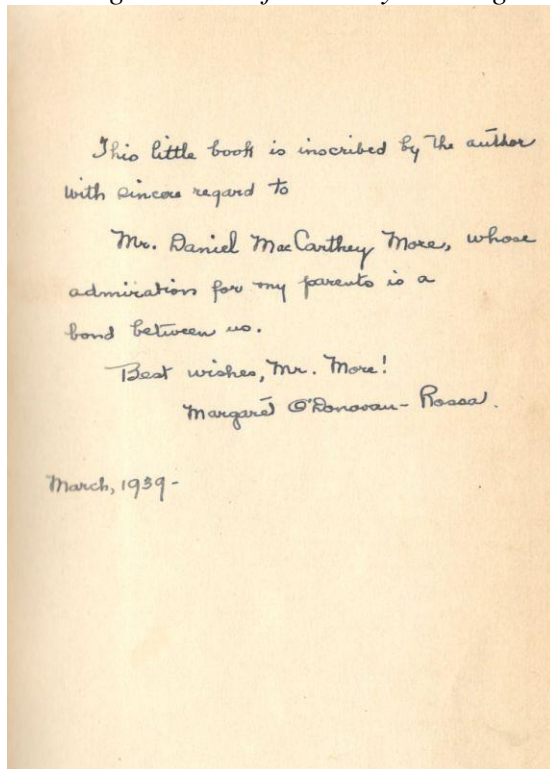 This little book is inscribed by the author
with sincere regard to
Mr. Daniel MacCarthey More, whose
admiration for my parents is a
bond between us.
Best wishes, Mr. More!
Margaret O'Donovan-Rossa.
March, 1939-